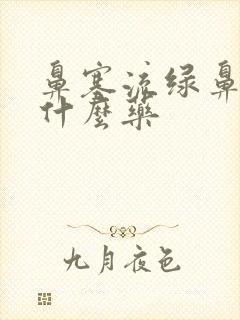 鼻塞流绿鼻
什麼藥
九月夜色